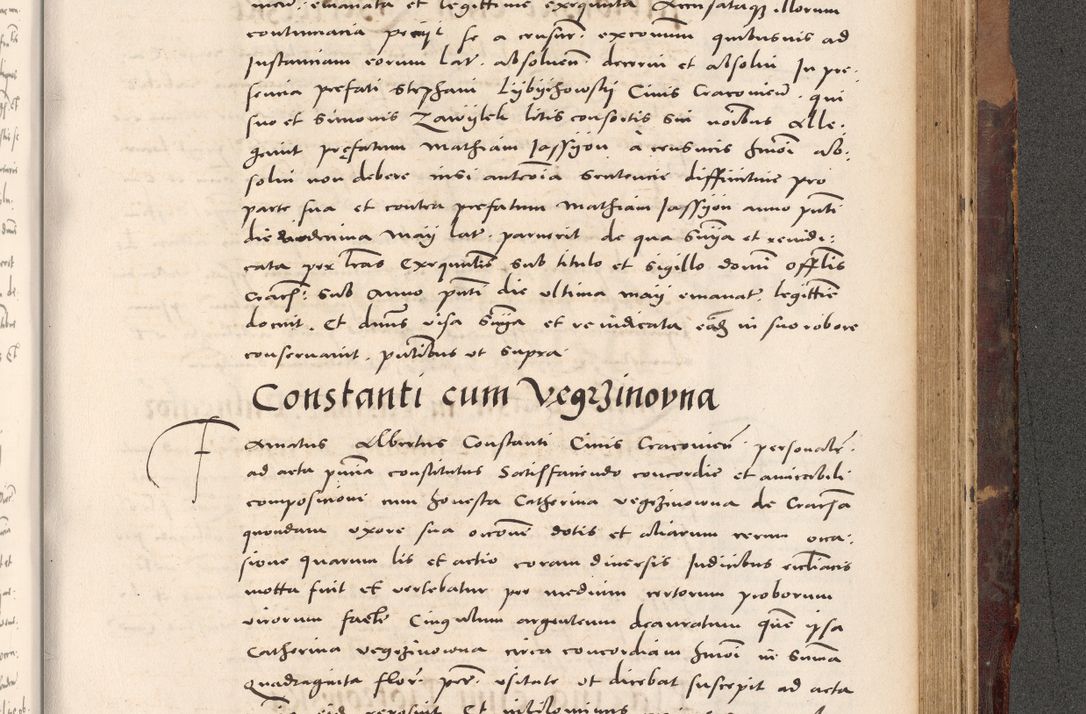 emanata et legittime exequuta Accusatasque illorum
contumacia petiit se a censuris excomm quibusuis ad
Instantiam eorum lat. absoluen. decerni et absolui In pre-
sentia prefati Stephani Lybychowsky Ciuis Cracouien. qui
suo et Simonis Zawyslek litis consortis sui noibus Alle-
gauit prefatum Mathiam Jassyon a censuris hmoi ab-
solui non debere nisi anteoia Sentencie diffinitiue pro
parte sua et contra prefatum Mathiam Jassyon anno pnti
die duodecima Maij lat. paruerit de qua Snia et reiudi-
cata per lras Exequutles sub titulo et sigillo domi Offlis
Cracs. Sub Anno pnti die vltima Maij emanat. legittie
docuit. Et dnus visa Snia et re iudicata eadz in suo robore
conseruauit. pntibus vt Supra
Constanti cum Vegrzinovna
Famatus Albertus Constanti Ciuis Cracouien. personalr.
ad acta pntia constitutus Satisffaciendo concordie et amicabili
compositioni cum honesta Catherina vegrzinowna de Cracouia
quondam vxore sua occone dotis et aliarum rerum occa-
sione quarum lis et actio coram diuersis Judicibus ecclîacis
motta fuit et vertebatur per medium certorum proborum
virorum fact. Cingulum argenteum deauratum que ipsa
Catherina vegrzinowna circa concordiam hmoi in Suma
Quadraginta flor. per. vsitate vt dicebat suscepit ad acta
reposuit Et nihilominus